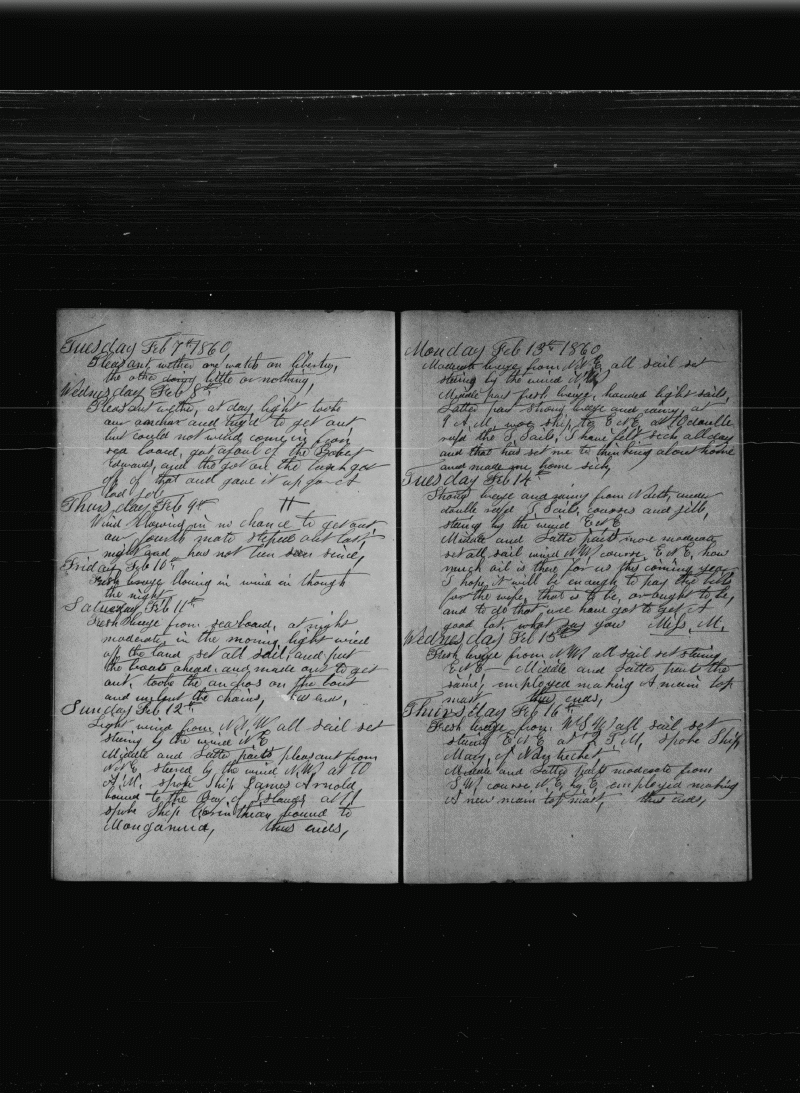 Tuesday Feb 7th 1860
Pleasant wether one watch on liberty,
the other doing little or nothing,
Wednesday Feb 8th
Pleasant wether, at day light took
our anchor and tryed to get out
but could not wind coming in from
sea board, got afoul of the Robert
Edwards, and the got on the
off of that and gave it up for a
bad job
Thursday Feb 9th
Wind blowing in no chance to get out
our fourth mate steped out last
night and has not ben seen since,
Friday Feb 10th
Fresh breeze blowing in wind in though
the night
Saturday Feb 11th
Fresh breeze from seaboard, at night
moderate, in the morning light wind
off the land set all sail, and put
the boats ahead, and made out to get
out, took the anchors on the bows
and unbent the chains, thus ends,
Sunday Feb 12th
Light wind from N.N.W all sail set
stering by the wind N E
Middle and Latter parts pleasant from
N.N.E stered by the wind N.W, at 10
A.M. spoke Ship James Arnold
bound to the Bay of Islands at 11
spoke Ship Corinthian bound to
Monganuia, thus ends,
Monday Feb 13th 1860
Moderate breeze from N.N.E all sail set
stering by the wind N.W.
Middle part fresh breeze, handed light sails,
Latter part Strong breeze and rainy, at
9 A.M. wore ship to E.N.E, at 10 double
reefd the T. Sails, I have felt sick all day
and that has set me to thinking about home
and made me home sick,
Tuesday Feb 14th
Strong breeze and rainy from North, under
double reefd T. Sails, courses and jibb,
stering by the wind E.N.E
Middle and Latter parts more moderate
set all sail wind N.W. course E.N.E, how
much oil is there for us this coming year
I hope it will be enough to pay the bills
for the wife, that is to be, or ought to be,
and to do that, we have got to get A
good lot, what say you Miss. M.
Wednesday Feb 15th
Fresh breeze from N.W. all sail set stering
E.N.E Middle and Latter parts the
same, employed making A main top
mast thus ends,
Thursday Feb 16th
Fresh breeze from W.S.W. all sail set
stering E.N.E at P.M. spoke Ship
Mary, of Nantucket,
Middle and Latter parts moderate from
S.W. course N.E. by E. employed making
A new main top mast, thus ends,